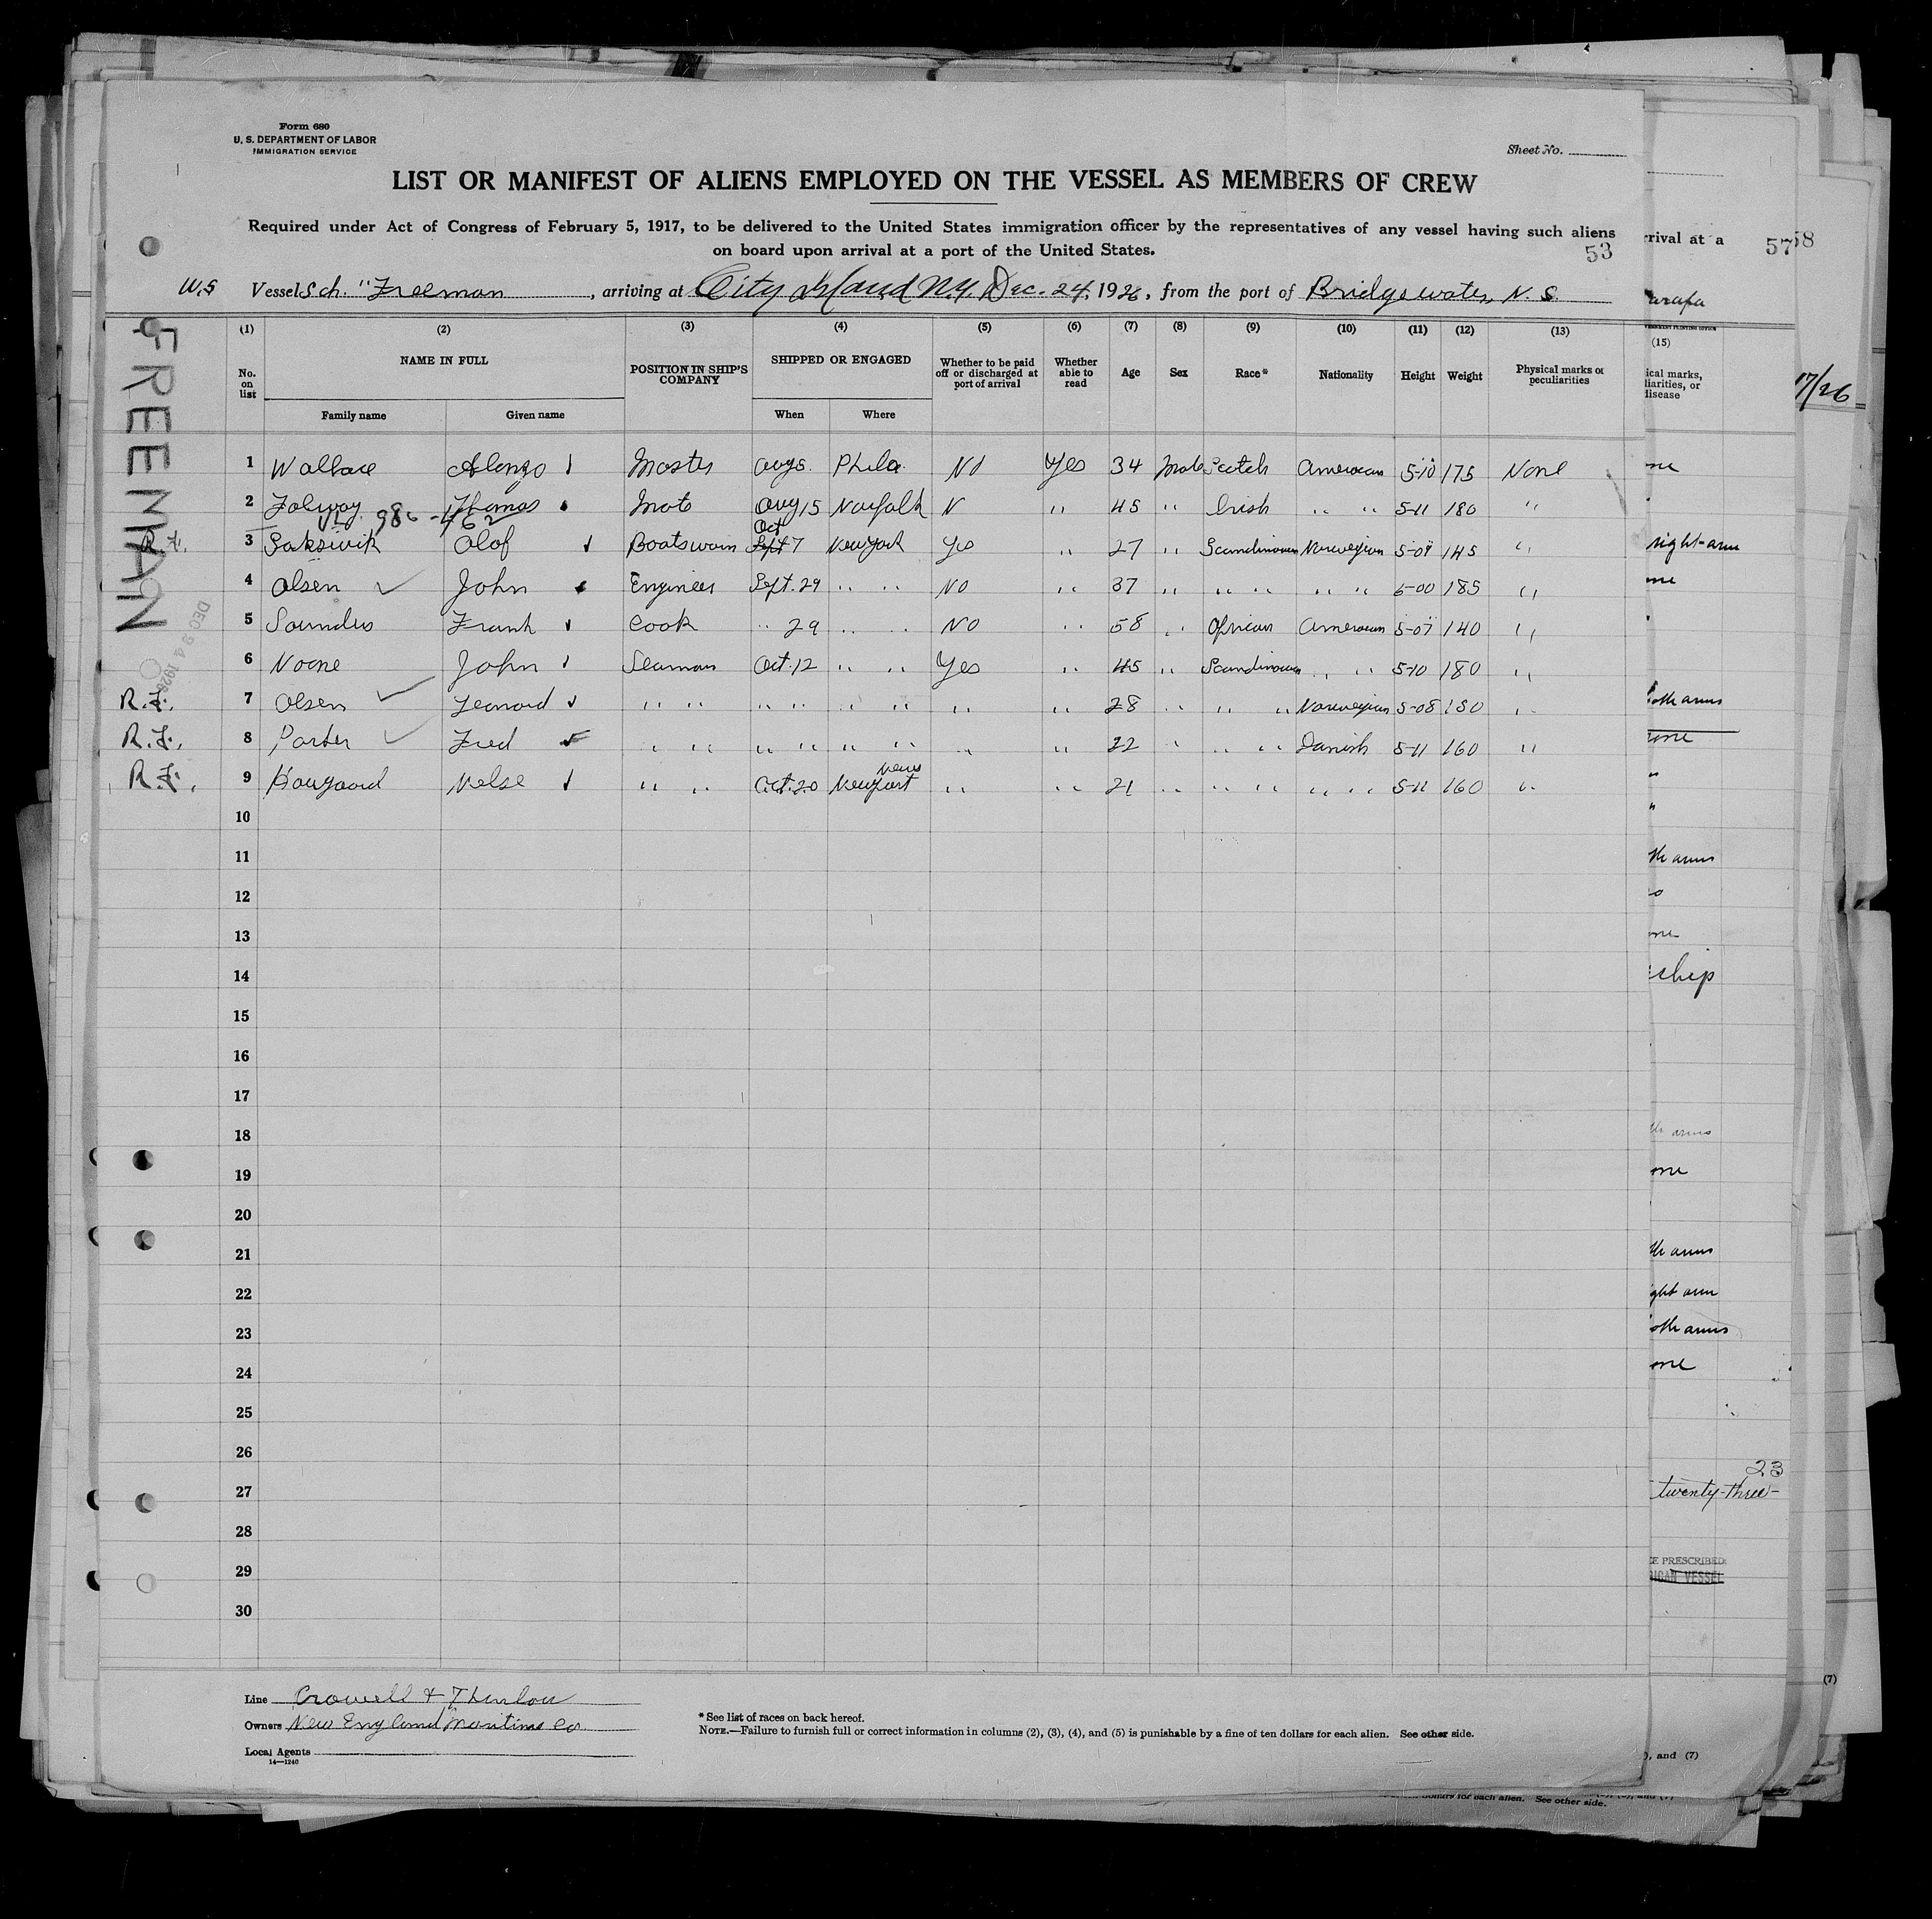 Form 680
U. S. DEPARTMENT OF LABOR
IMMIGRATION SERVICE
Sheet No.
LIST OR MANIFEST OF ALIENS EMPLOYED ON THE VESSEL AS MEMBERS OF CREW
Required under Act of Congress of February 5, 1917, to be delivered to the United States immigration officer by the representatives of any vessel having such aliens
on board upon arrival at a port of the United States.
53
rrival at a 57 58
W.S Vessel Sch. "Freeman, arriving at City Island N.Y. Dec. 24, 1926, from the port of Bridgewater, N. S.
FREEMAN
DEC 24 1926
(1) (2) (3) (4) (5) (6) (7) (8) (9) (10) (11) (12) (13) (15)
No. on list NAME IN FULL POSITION IN SHIP'S COMPANY SHIPPED OR ENGAGED Whether to be paid off or discharged at port of arrival Whether able to read Age Sex Race* Nationality Height Weight Physical marks or peculiarities
ical marks, liarities, or disease
17/26
Family name Given name When Where
1 Wallace Alonzo Master Aug 5. Phila. No Yes 34 Male Scotch American 5-10 175 None
2 Thomas Mate Aug 15 Norfolk N " 45 " Irish " " 5-11 180 "
R.F. 3 Olof Boatswain Oct Sept 7 New York Yes " 27 " Scandinavian Norwegian 5-08 145 " right arm
4 Olsen John Engineer Sept. 29 " " No " 37 " " " " " 6-00 185 "
5 Saunders Frank Cook " 29 " " No " 58 " African American 5-07 140 "
6 Noone John Seaman Oct. 12 " " Yes " 45 " Scandinavian " " 5-10 180 "
R.F. 7 Olsen Leonard " " " " " " " " 28 " " " Norwegian 5-08 150 " both arms
R.F. 8 Porter Fred " " " " " " " " 22 " " " Danish 5-11 160 "
R.F. 9 Nelse " " Oct. 20 Newport News " " 21 " " " " " 5-11 160 "
10
11
12
13
14
15
16
17
18
19
20
21
22
23
24
25
26
27
28
29
30
ship
23
twenty-three-
CE PRESCRIBED
RICAN VESSEL
Line Crowell & Thurlow
Owners New England Maritime Co.
Local Agents
14—1240
* See list of races on back hereof.
NOTE.—Failure to furnish full or correct information in columns (2), (3), (4), and (5) is punishable by a fine of ten dollars for each alien. See other side.
(7)
), and (7)
dollars for each alien. See other side.